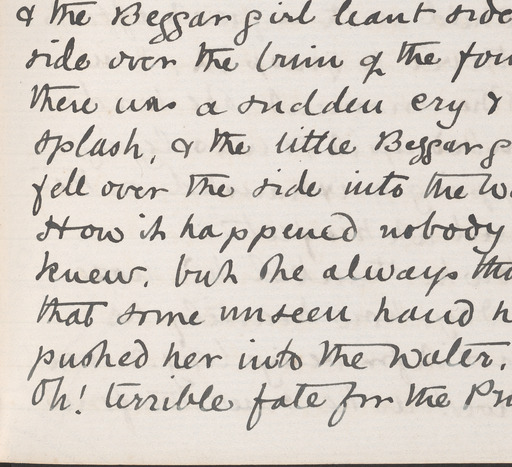 & the Beggar girl leant side
side over the brim of the fou
there was a sudden cry &
splash, & the little Beggar g
fell over the side into the w
How it happened nobody
knew, but she always tho
that some unseen hand h
pushed her into the water.
Oh! terrible fate for the Pri